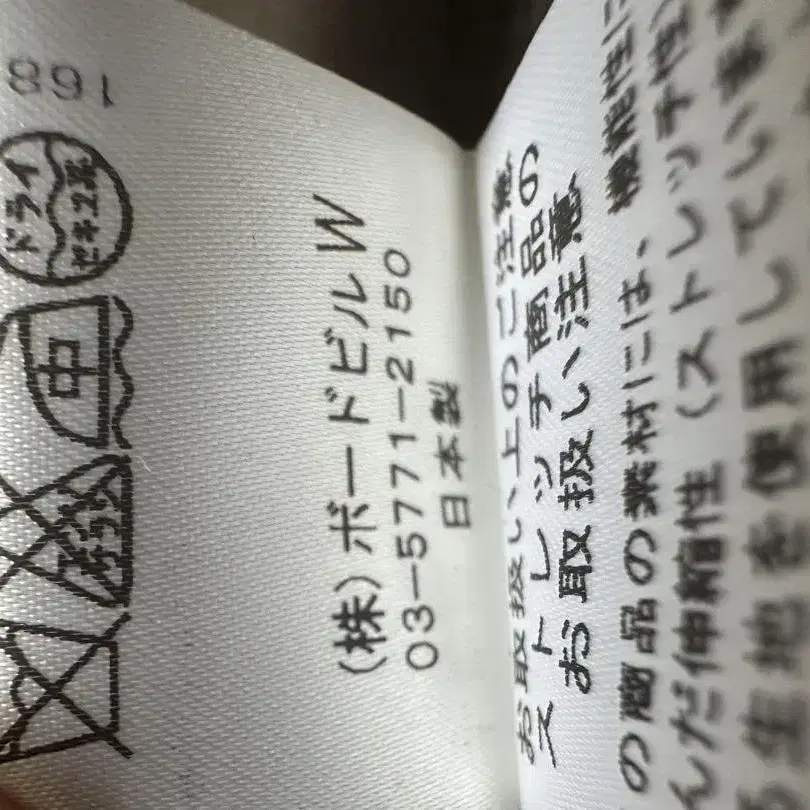 ドライ
セキユ系
中
エンソサラシ
(株)ボードビルW
03-5771-2150
日本製
お取扱い上のご注意
ストレッチ商品の
お取扱い注意
の商品の素材には、機能性に
んだ伸縮性(ストレッチ性)
生地を使用していま